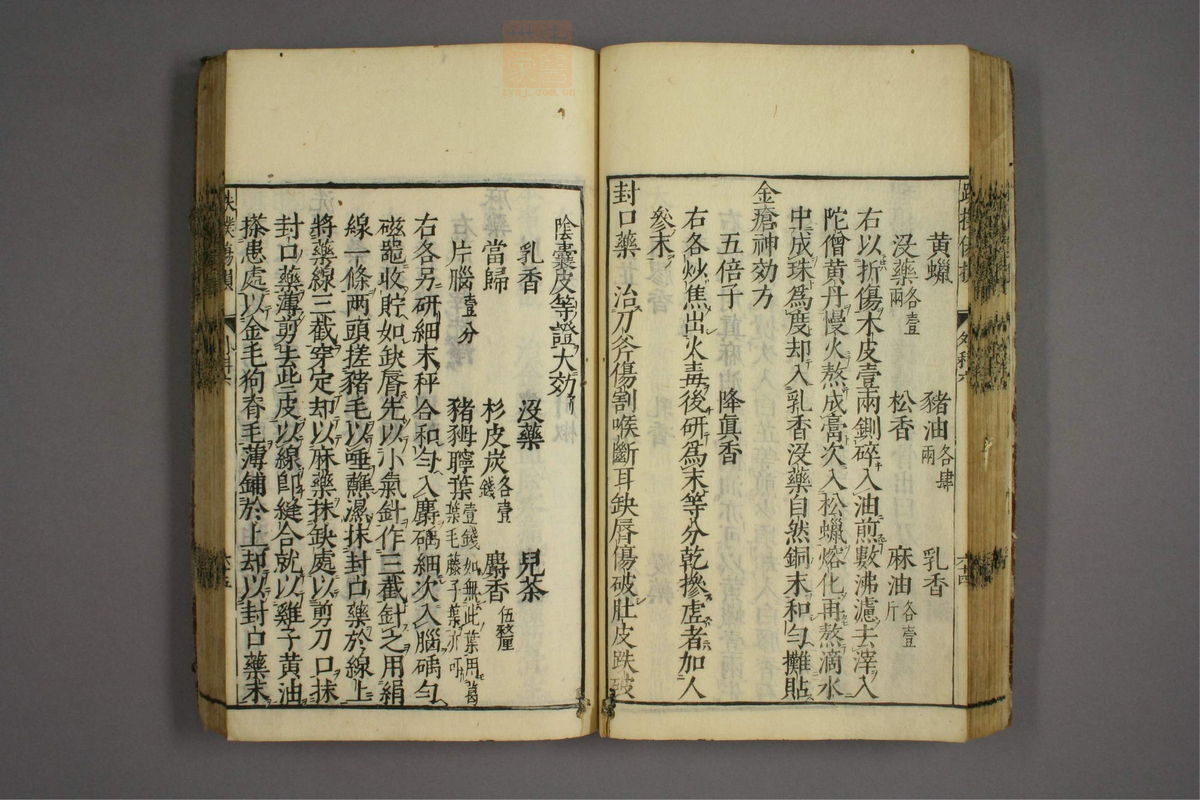 黄蠟　豬油各肆兩　乳香
沒藥各壹兩　松香　麻油各壹斤
右以折傷木皮壹兩鍘碎入油煎數沸濾去滓入
陀僧黄丹慢火熬成膏次入松蠟熔化再熬滴水
中成珠爲度却入乳香沒藥自然銅末和勻攤貼
金瘡神効方
五倍子　降眞香
右各炒焦出火毒後研爲末等分乾摻虛者加人
參末
封口藥　治刀斧傷割喉斷耳缺唇傷破肚皮跌破
陰囊皮等證大効
乳香　沒藥　兒茶
當歸　杉皮炭各壹錢　麝香伍釐
片腦壹分　豬㛁聹葉壹錢如無此葉用葛葉毛藤子葉亦可
右各另研細末秤合和勻入麝碢細次入腦碢勻
磁噐收貯如缺唇先以小氣針作三截針之用絹
線一條兩頭搓豬毛以唾蘸濕抹封口藥於線上
將藥線三截穿定却以麻藥抹缺處以剪刀口抹
封口藥薄剪去些皮以線卽縫合就以雞子黄油
搽患處以金毛狗脊毛薄鋪於上却以封口藥末
跌撲傷損
六十五
六十四